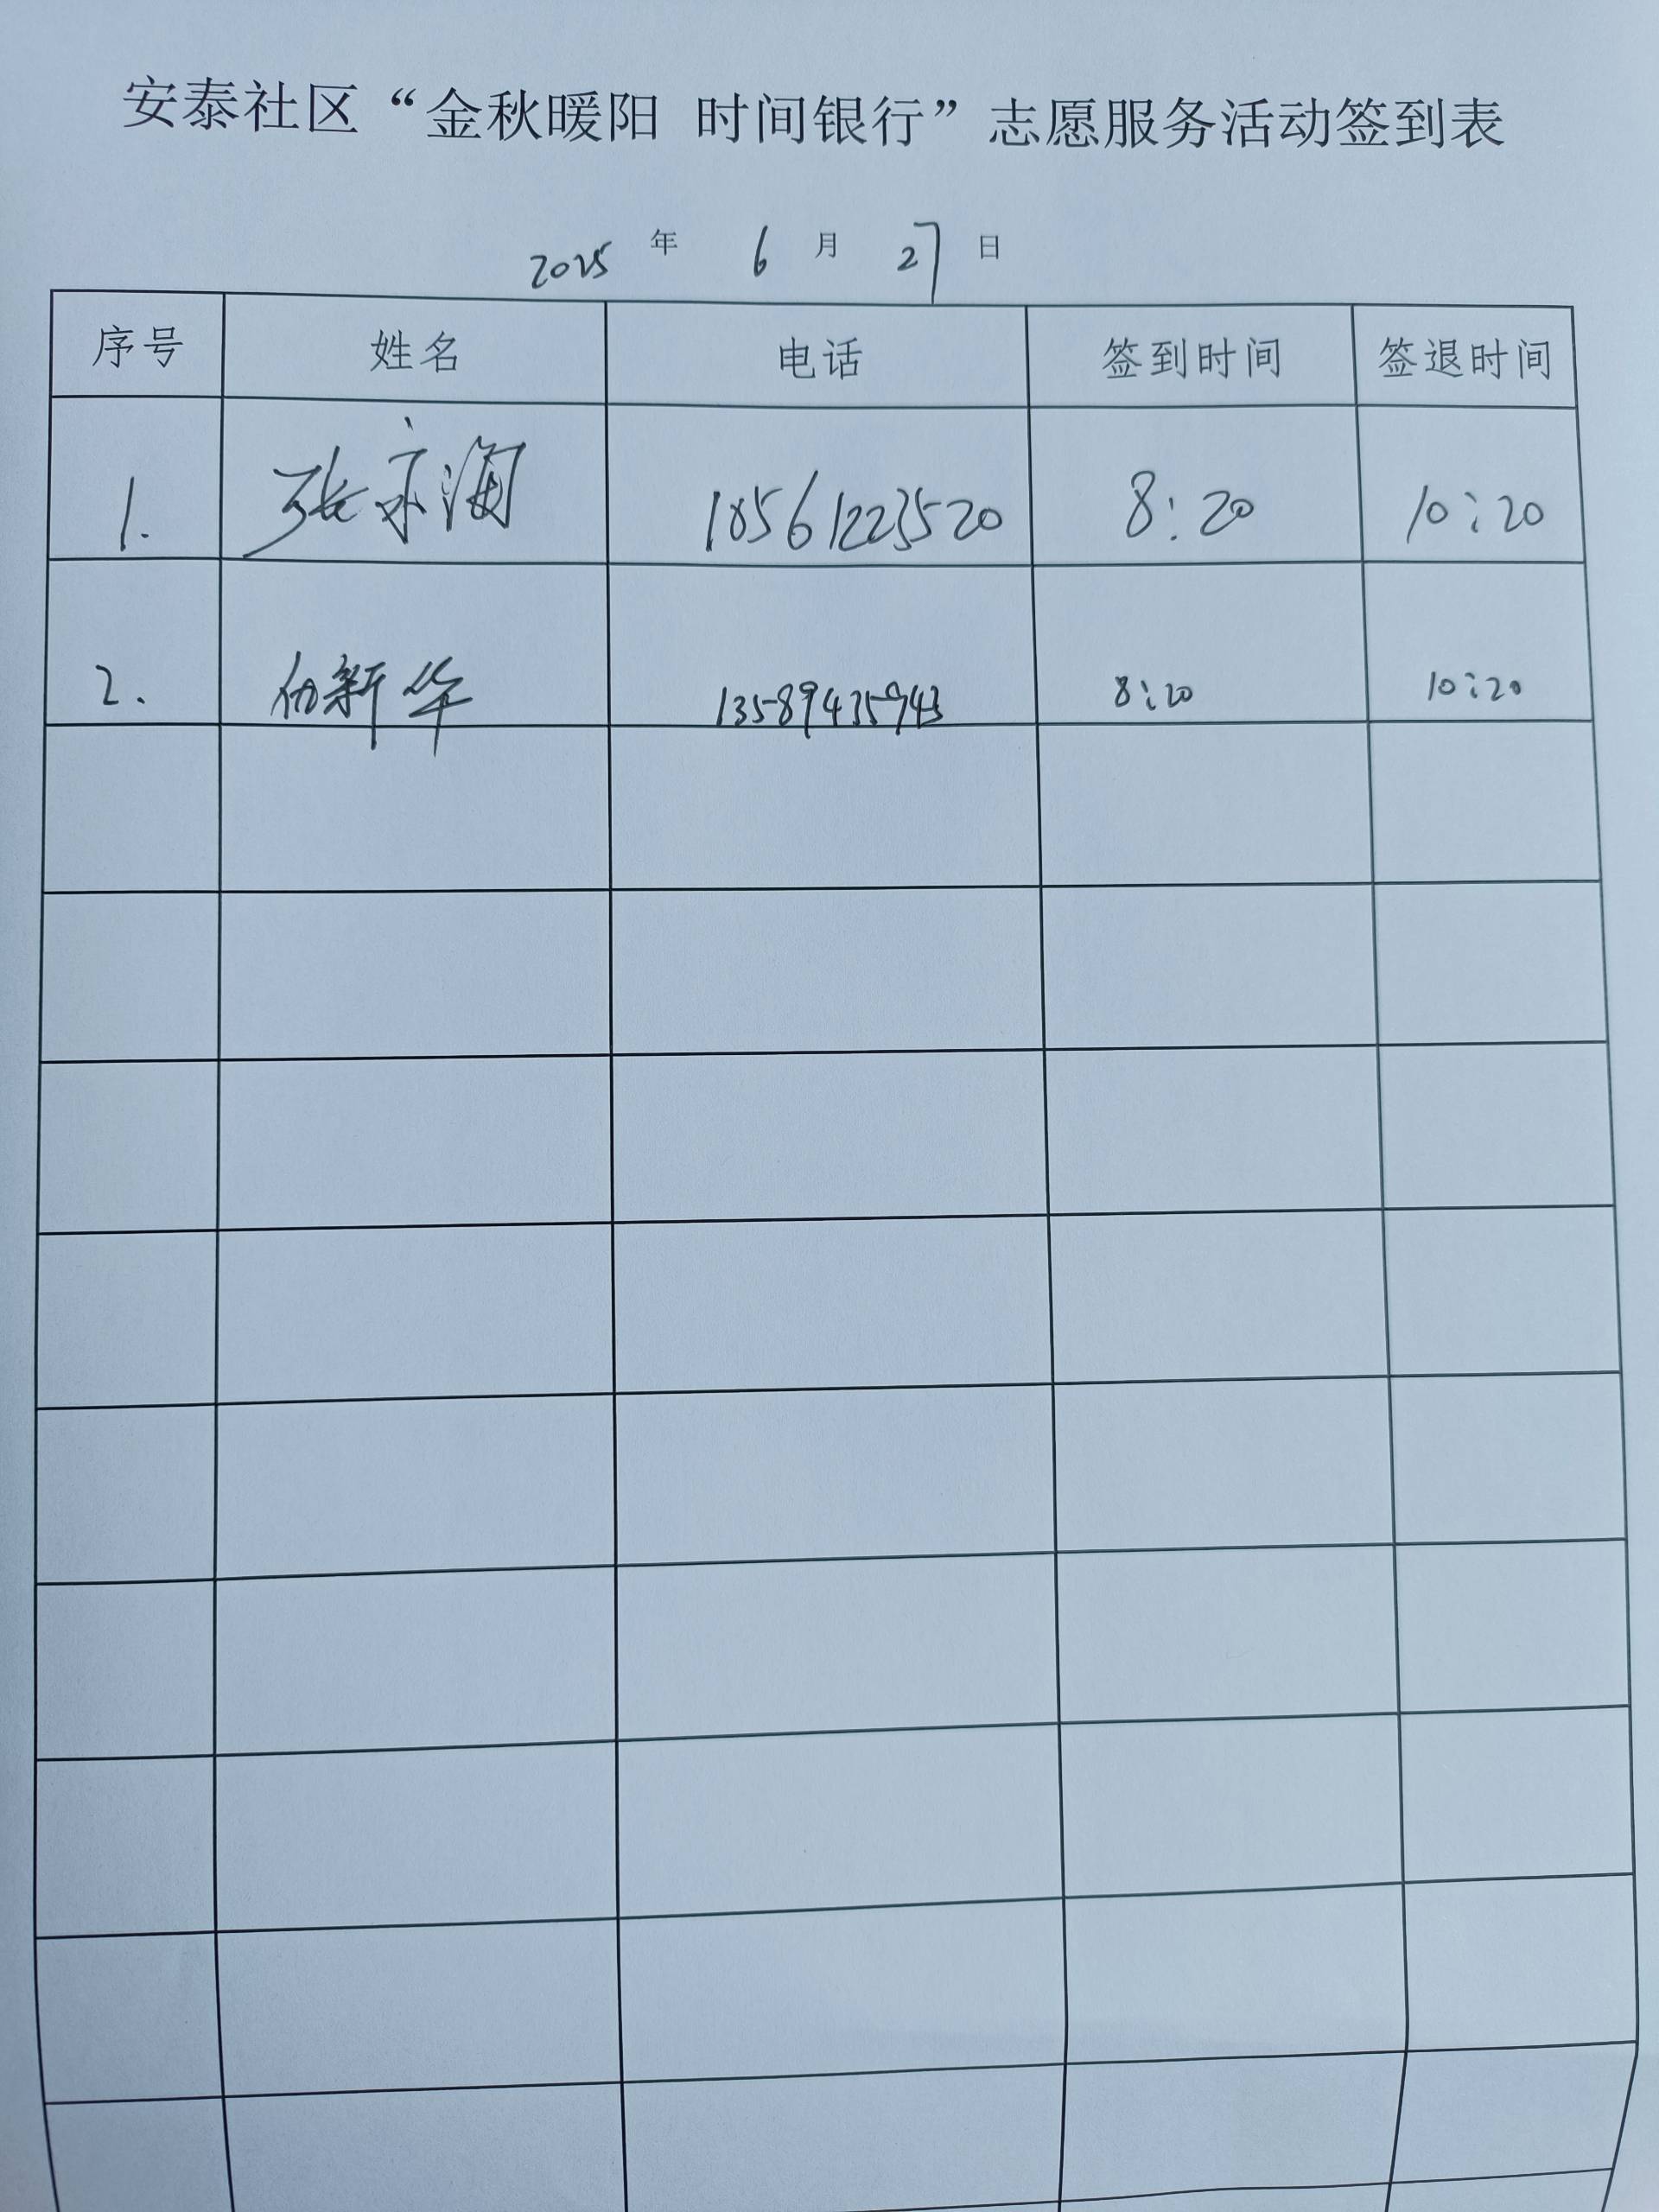 安泰社区“金秋暖阳 时间银行”志愿服务活动签到表
2025 年 6 月 27 日
序号 姓名 电话 签到时间 签退时间
1. 张京海 18561223520 8:20 10:20
2. 新华 13589435943 8:20 10:20